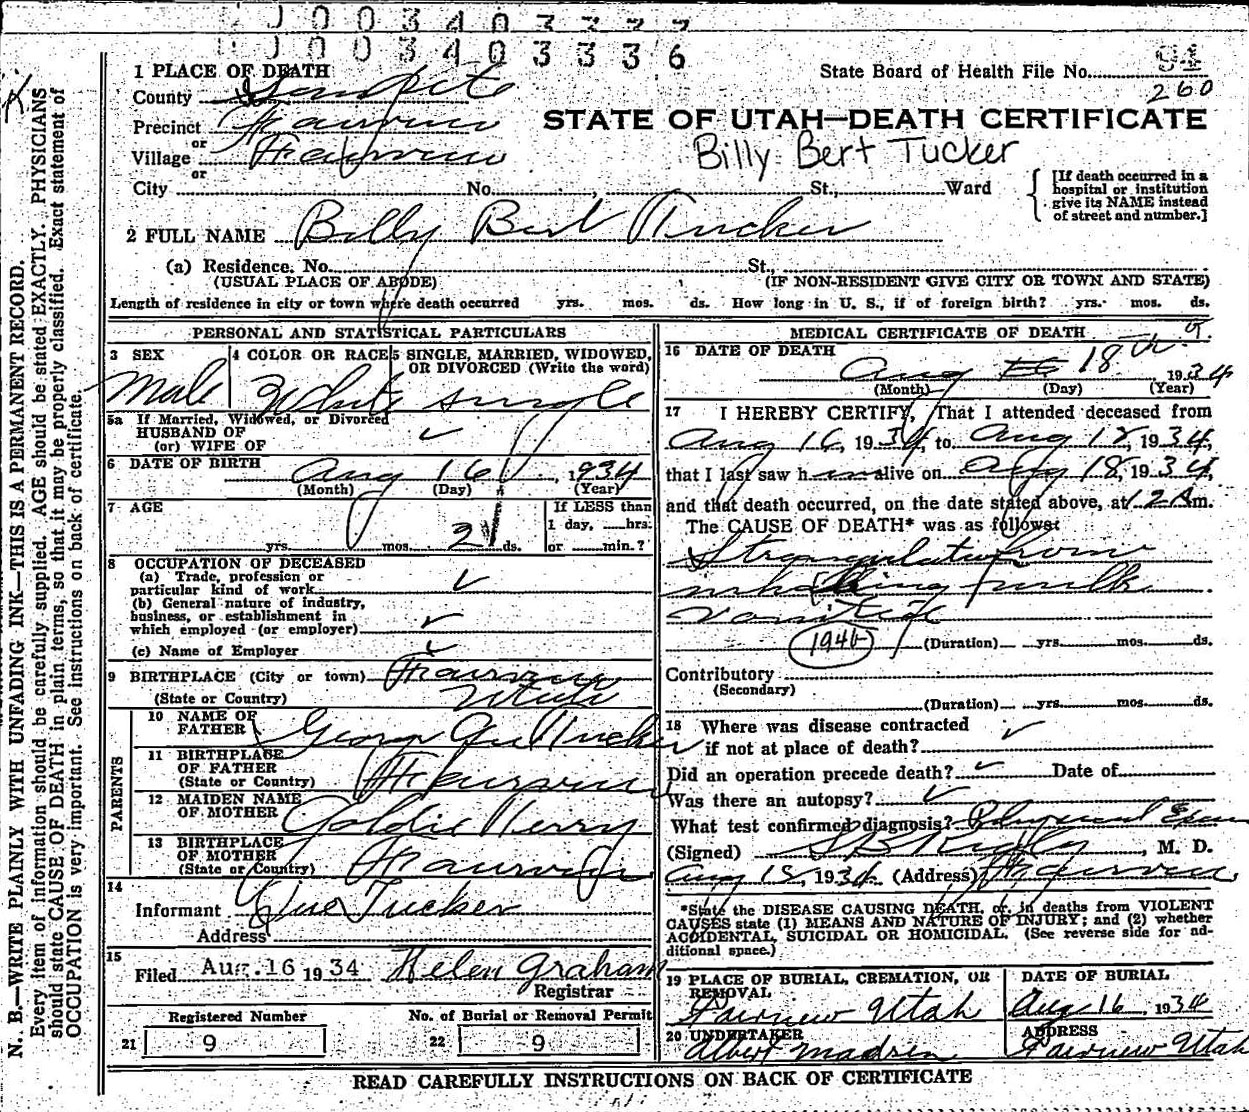 0 0 0 3 4 0 3
0 0 0 3 4 0 3 3 3 6
1 PLACE OF DEATH
State Board of Health File No. 94
260
County Sanpete
STATE OF UTAH—DEATH CERTIFICATE
Precinct Fairview
or
Billy Bert Tucker
Village Fairview
or
City No. St., Ward
[If death occurred in a hospital or institution give its NAME instead of street and number.]
2 FULL NAME Billy Bert Tucker
(a) Residence. No. St.,
(USUAL PLACE OF ABODE) (IF NON-RESIDENT GIVE CITY OR TOWN AND STATE)
Length of residence in city or town where death occurred yrs. mos. ds. How long in U. S., if of foreign birth? yrs. mos. ds.
PERSONAL AND STATISTICAL PARTICULARS
3 SEX
Male
4 COLOR OR RACE
White
5 SINGLE, MARRIED, WIDOWED, OR DIVORCED (Write the word)
single
5a If Married, Widowed, or Divorced
HUSBAND OF
(or) WIFE OF
6 DATE OF BIRTH Aug 16, 1934
(Month) (Day) (Year)
7 AGE
yrs. mos. 2 ds.
If LESS than
1 day, hrs.
or min.?
8 OCCUPATION OF DECEASED
(a) Trade, profession or
particular kind of work
(b) General nature of industry,
business, or establishment in
which employed (or employer)
(c) Name of Employer
9 BIRTHPLACE (City or town) Fairview
(State or Country) Utah
PARENTS
10 NAME OF
FATHER George Tucker
11 BIRTHPLACE
OF FATHER
(State or Country) Fairview
12 MAIDEN NAME
OF MOTHER Goldie Terry
13 BIRTHPLACE
OF MOTHER
(State or Country) Fairview
14
Informant Tucker
Address
15
Filed Aug. 16 1934 Helen Graham
Registrar
Registered Number No. of Burial or Removal Permit
21 9 22 9
MEDICAL CERTIFICATE OF DEATH
16 DATE OF DEATH
Aug 18th 1934
(Month) (Day) (Year)
17 I HEREBY CERTIFY, That I attended deceased from
Aug 16, 1934, to Aug 18, 1934,
that I last saw him alive on Aug 18, 1934,
and that death occurred, on the date stated above, at 12 A m.
The CAUSE OF DEATH* was as follows:
Strangulation from
milk
1946
(Duration) yrs. mos. ds.
Contributory
(Secondary)
(Duration) yrs. mos. ds.
18 Where was disease contracted
if not at place of death?
Did an operation precede death? Date of
Was there an autopsy?
What test confirmed diagnosis? Physical Exam
(Signed) , M. D.
Aug 18, 1934 (Address) Fairview
*State the DISEASE CAUSING DEATH, or, in deaths from VIOLENT
CAUSES state (1) MEANS AND NATURE OF INJURY; and (2) whether
ACCIDENTAL, SUICIDAL OR HOMICIDAL. (See reverse side for ad-
ditional space.)
19 PLACE OF BURIAL, CREMATION, OR
REMOVAL
Fairview Utah
DATE OF BURIAL
Aug 16, 1934
20 UNDERTAKER
Albert Madsen
ADDRESS
Fairview Utah
READ CAREFULLY INSTRUCTIONS ON BACK OF CERTIFICATE
N. B.—WRITE PLAINLY WITH UNFADING INK—THIS IS A PERMANENT RECORD.
Every item of information should be carefully supplied. AGE should be stated EXACTLY. PHYSICIANS
should state CAUSE OF DEATH in plain terms, so that it may be properly classified. Exact statement of
OCCUPATION is very important. See instructions on back of certificate.